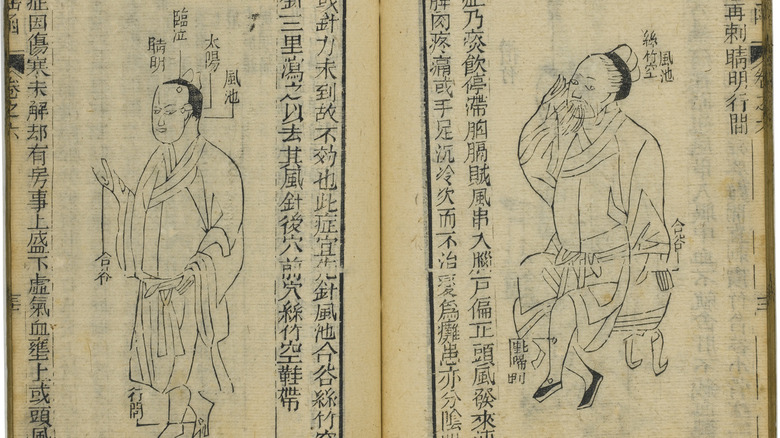 再刺睛明行間
卷之六
風池
絲竹空
合谷
陽明
症乃痰飲停滯胸膈賊風串入腦戶偏正頭風發來
疼痛或手足沉冷久而不治變為癱患亦分陰
或針力未到故不効也此症宜先針風池合谷絲竹空
針三里瀉之以去其風針後穴前穴絲竹空鞋帶
風池
太陽
臨泣
睛明
合谷
行間
症因傷寒未解却有房事上盛下虛氣血壅上或頭風
卷之六